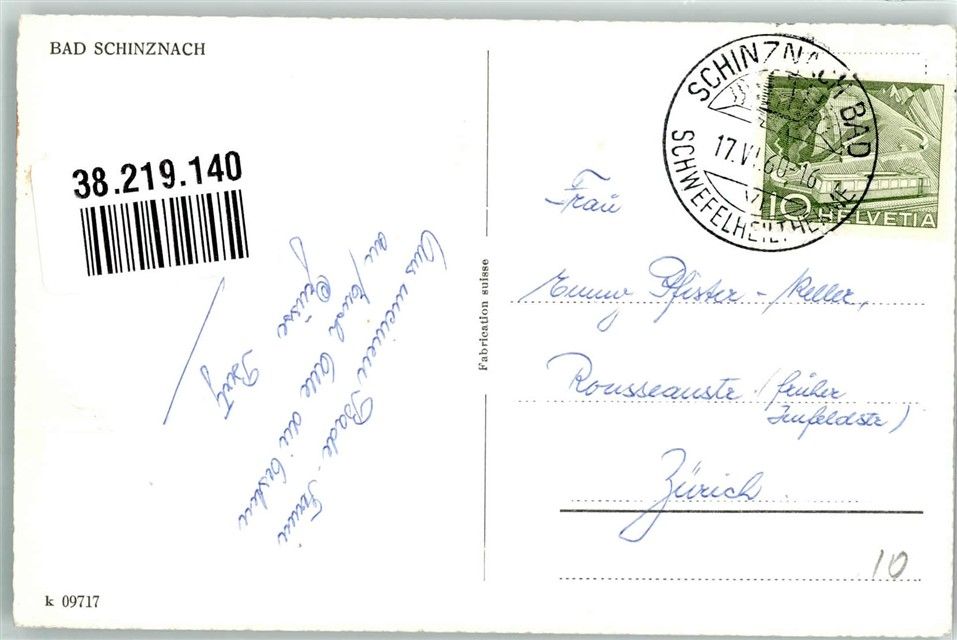 BAD SCHINZNACH
38.219.140
Aus meinem Bade-
an Euch alle die besten
Grüsse
Fabrication suisse
SCHINZNACH BAD
17.VI.60-16
SCHWEFELHEILTHERME
10 HELVETIA
Frau
Emmy Pfister-Keller,
Rousseaustr (früher
Imfeldstr)
Zürich
10
k 09717